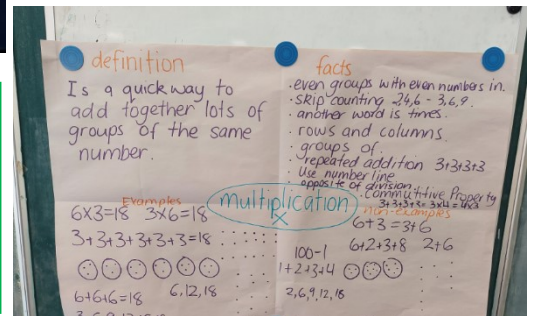 definition
Is a quick way to
add together lots of
groups of the same
number.
facts
· even groups with even numbers in.
· skip counting 2,4,6 - 3,6,9.
· another word is times.
· rows and columns
· groups of.
· repeated addition 3+3+3+3
· Use number line
· opposite of division
· Commutitive Property
3+3+3+3= 3x4= 4x3
multiplication
x
Examples
6x3=18 3x6=18
3+3+3+3+3+3=18
6+6+6=18
6,12,18
non-examples
6+3=3+6
100-1
6+2+3+8 2+6
1+2+3+4
2,6,9,12,18